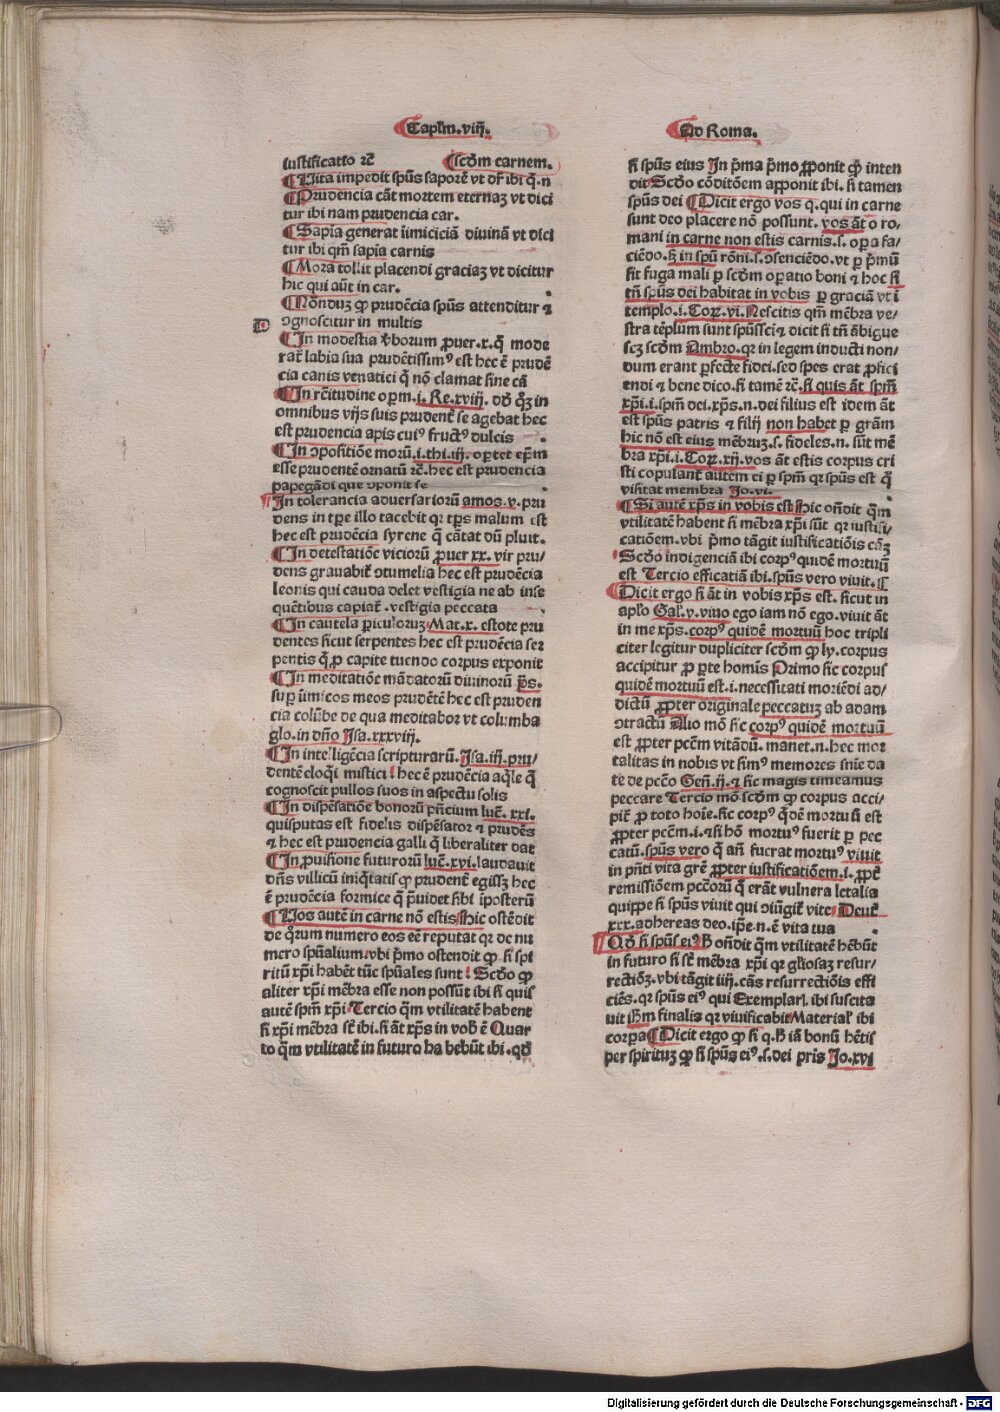 Capl̄m.viij.
iustificatio rē ¶scd̄m carnem.
¶Uita impedit spūs saporē vt dr̄ ibi q̄.n
¶Prudencia cāt mortem eternaȝ vt dici
tur ibi nam prudencia car.
¶Sapīa generat īimiciciā diuinā vt dici
tur ibi qm̄ sapīa carnis
¶Mora tollit placendi graciaȝ vt dicitur
hic qui aūt in car.
¶Nōnduȝ ꝙ prudēcia spūs attenditur ⁊
D ꝯgnoscitur in multis
¶In modestia v̄borum ꝓuer.x.q̄ mode
rat̄ labia sua prudētissimꝰ est hec ē prudē
cia canis venatici q̄ nō clamat sine cā
¶In rc̄titudine oꝑm.i.Re.xviij. dd̄ qȝ in
omnibus vijs suis prudent̄ se agebat hec
est prudencia apis cuiꝰ fructꝰ dulcis
¶In ꝯpositiōe morū.i.thi.iij. oꝑtet ep̄m
esse prudentē ornatū rē.hec est prudencia
papegādi que ꝯponit se
¶In tolerancia aduersariorū amos.v.pru
dens in tp̄e illo tacebit qr tp̄s malum est
hec est prudēcia syrene q̄ cātat dū pluit.
¶In detestatiōe viciorū ꝓuer xx. vir pru/
dens grauabit̄ ꝯtumelia hec est prudēcia
leonis qui cauda delet vestigia ne ab inse
quētibus capiat̄.vestigia peccata
¶In cautela ꝑiculoruȝ Mat.x.estote pru
dentes sicut serpentes hec est prudēcia ser
pentis q̄ ꝓ capite tuendo corpus exponit
¶In meditatiōe mādatorū diuinorū p̄s.
suꝑ īimicos meos prudētē hec est pruden
cia colūbe de qua meditabor vt columba
glo.in dn̄o Isa.xxxviij.
¶In intelligēcia scripturarū. Isa.iij.pru/
dentē eloq̄i mistici hec ē prudēcia aq̄le q̄
cognoscit pullos suos in aspectu solis
¶In dispēsatiōe bonorū pn̄cium luc̄.xxi.
quisputas est fidelis dispēsator ⁊ prudēs
⁊ hec est prudencia galli q̄ liberaliter dat
¶In ꝓuisione futurorū luc̄.xvi.laudauit
dn̄s villicū iniq̄tatis ꝙ prudent̄ egissȝ hec
ē prudēcia formice q̄ p̄uidet sibi īposterū
¶Uos autē in carne nō estis hic ostēdit
de qͦrum numero eos eē reputat qr de nu
mero spūalium.vbi p̄mo ostendit ꝙ si spi
ritū xp̄i habēt tūc spūales sunt Scd̄o ꝙ
aliter xp̄i mēbra esse non possūt ibi si quis
autē spm̄ xp̄i Tercio q̄m vtilitatē habent
si xp̄i mēbra sc̄ ibi.si āt xp̄s in vob̄ ē Quar
to q̄m vtilitatē in futuro habebūt ibi.qd̄
Ad Roma.
si spūs eius In p̄ma p̄mo ꝓponit qd̄ inten
dit Scd̄o cōditōem apponit ibi. si tamen
spūs dei ¶Dicit ergo vos q.qui in carne
sunt deo placere nō possunt. vos āt o ro-
mani in carne non estis carnis.s.oꝑa fa/
ciēdo.sȝ in spū rōni.s.ꝯsenciēdo.vt ꝑ p̄mū
sit fuga mali ꝑ scd̄m oꝑatio boni ⁊ hoc si
tn̄ spūs dei habitat in vobis ꝑ graciā vt ī
templo.i.Coꝝ.vi.Nescitis qm̄ mēbra ve/
stra tēplum sunt spūssc̄i ⁊ dicit si tn̄ ābigue
scȝ scd̄m Ambro.qr in legem inducti non/
dum erant ꝑfecte fidei.sed spes erat ꝓfici
endi ⁊ bene dico.si tamē rē.si quis āt spm̄
xp̄i.i.spm̄ dei.xp̄s.n.dei filius est idem āt
est spūs patris ⁊ filij non habet ꝑ grām
hic nō est eius mēbruȝ.s.fideles.n.sūt mē
bra xp̄i.i.Coꝝ.xij.vos āt estis corpus cri
sti copulant̄ autem ei ꝑ spm̄ qr spūs est q̄
visitat membra Jo.vi.
¶Si autē xp̄s in vobis est hic on̄dit q̄m
vtilitatē habent si mēbra xp̄i sūt qr iustifi/
catiōem.vbi p̄mo tāgit iustificatiōis cāȝ
Scd̄o indigenciā ibi corpꝰ quidē mortuū
est Tercio efficatiā ibi.spūs vero viuit.¶
Dicit ergo si āt in vobis xp̄s est.sicut in
apl̄o Gal̄.v.viuo ego iam nō ego.viuit āt
in me xp̄s.corpꝰ quidē mortuū hoc tripli
citer legitur dupliciter scd̄m ꝙ ly.corpus
accipitur ꝓ ꝑte homīs Primo sic corpus
quidē mortuū est.i.necessitati moriēdi ad/
dictū ꝓpter originale peccatuȝ ab adam
ꝯtractū Alio mō sic corpꝰ quidē mortuū
est ꝓpter pctm̄ vitādū. manet.n.hec mor
talitas in nobis vt simꝰ memores snīe da
te de pctō Gen̄.ij.⁊ sic magis timeamus
peccare Tercio mō scd̄m ꝙ corpus acci/
pit̄ ꝓ toto hoīe.sic corpꝰ qdē mortuū est
ꝓpter pctm̄.i.⁊si hō mortuꝰ fuerit ꝑ pec
catū.spūs vero q̄ an̄ fuerat mortuꝰ viuit
in pn̄ti vita grē ꝓpter iustificatiōem.i.ꝓpt̄
remissiōem pctōrū q̄ erāt vulnera letalia
quippe si spūs viuit qui ꝯiūgit̄ vite Deut̄
xxx.adhereas deo.ip̄e.n.ē vita tua
¶Qd̄ si spūs eiꝰ B on̄dit q̄m vtilitatē hēbūt
in futuro si sc̄ mēbra xp̄i qr gl̄iosaȝ resur/
rectiōȝ.vbi tāgit iiij.cās resurrectiōis effi
ciēs.qr spūs eiꝰ qui Exemplar̄.ibi suscita
uit ihm̄ finalis qr viuificabit Material̄ ibi
corꝑa ¶Dicit ergo ꝙ si q.B iā bonū hētis
per spirituȝ ꝙ si spūs eiꝰ.s.dei pr̄is Jo.xvi
Digitalisierung gefördert durch die Deutsche Forschungsgemeinschaft - DFG